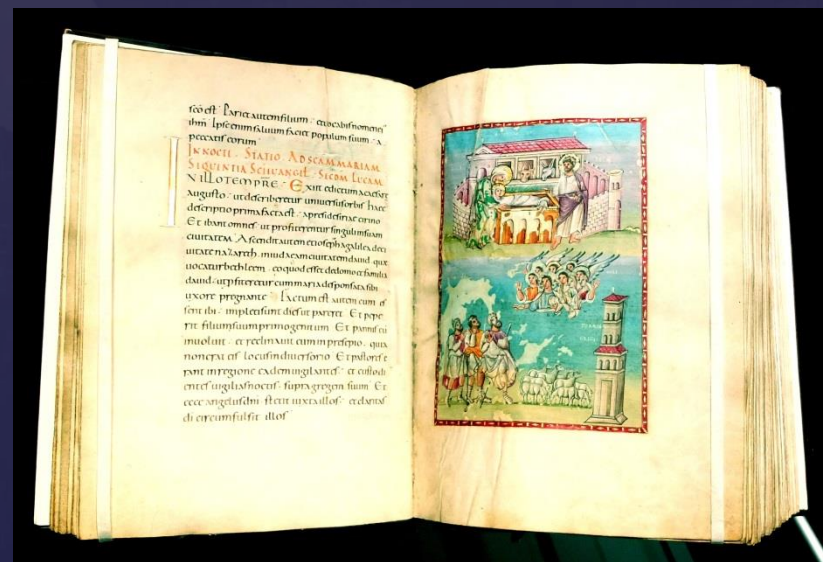 scō est · Pariet autem filium · et vocabis nomen ei
ihm · Ipse enim salvum faciet populum suum · a
peccatis eorum
IN NOCTE · STATIO AD SCAM MARIAM
SEQUENTIA SCI EUANGEL · SECDM LUCAM
IN ILLO TEMPRE · Exiit edictum a caesare
augusto · ut describeretur universus orbis haec
descriptio prima facta est · a preside siriae cirino
Et ibant omnes ut profiterentur singuli in suam
civitatem · Ascendit autem et ioseph a galilea de ci
vitate nazareth · in iudaeam civitatem david quae
vocatur bethleem · eo quod esset de domo et familia
david · ut pfiteretur cum maria desponsata sibi
uxore pregnante · Factum est autem cum es
sent ibi · impleti sunt dies ut pareret · Et pepe
rit filium suum primogenitum · Et pannis eū
involuit · et reclinavit eum in presepio · quia
non erat eis locus in diversorio · Et pastores e
rant in regione eadem vigilantes · et custodi
entes vigilias noctis · supra gregem suum · Et
ecce angelus dni stetit iuxta illos · et claritas
di circumfulsit illos